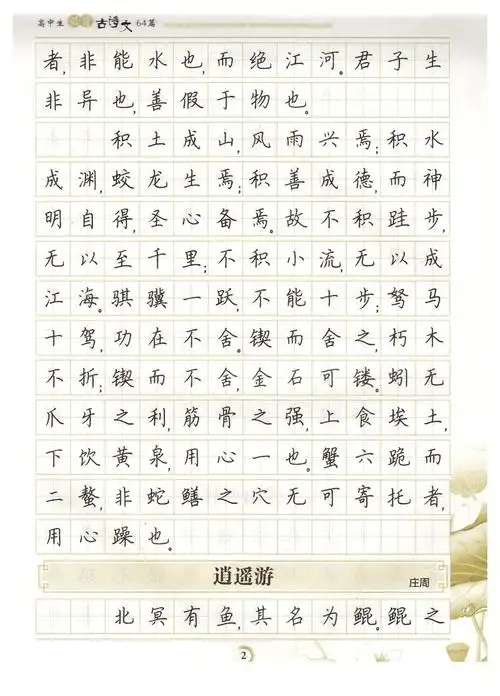 高中生必背古诗文64篇
者,非能水也,而绝江河。君子生
非异也,善假于物也。
积土成山,风雨兴焉;积水
成渊,蛟龙生焉;积善成德,而神
明自得,圣心备焉。故不积跬步,
无以至千里;不积小流,无以成
江海。骐骥一跃,不能十步;驽马
十驾,功在不舍。锲而舍之,朽木
不折;锲而不舍,金石可镂。蚓无
爪牙之利,筋骨之强,上食埃土,
下饮黄泉,用心一也。蟹六跪而
二螯,非蛇鳝之穴无可寄托者,
用心躁也。
逍遥游 庄周
北冥有鱼,其名为鲲。鲲之
2